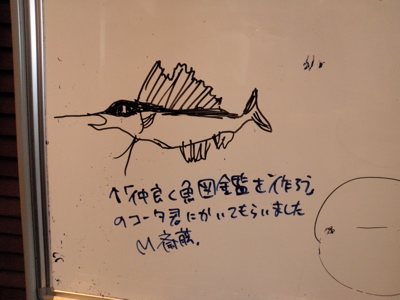 ↑「仲良く魚図鑑を作ろう」
のコータ君にかいてもらいました
齋藤.